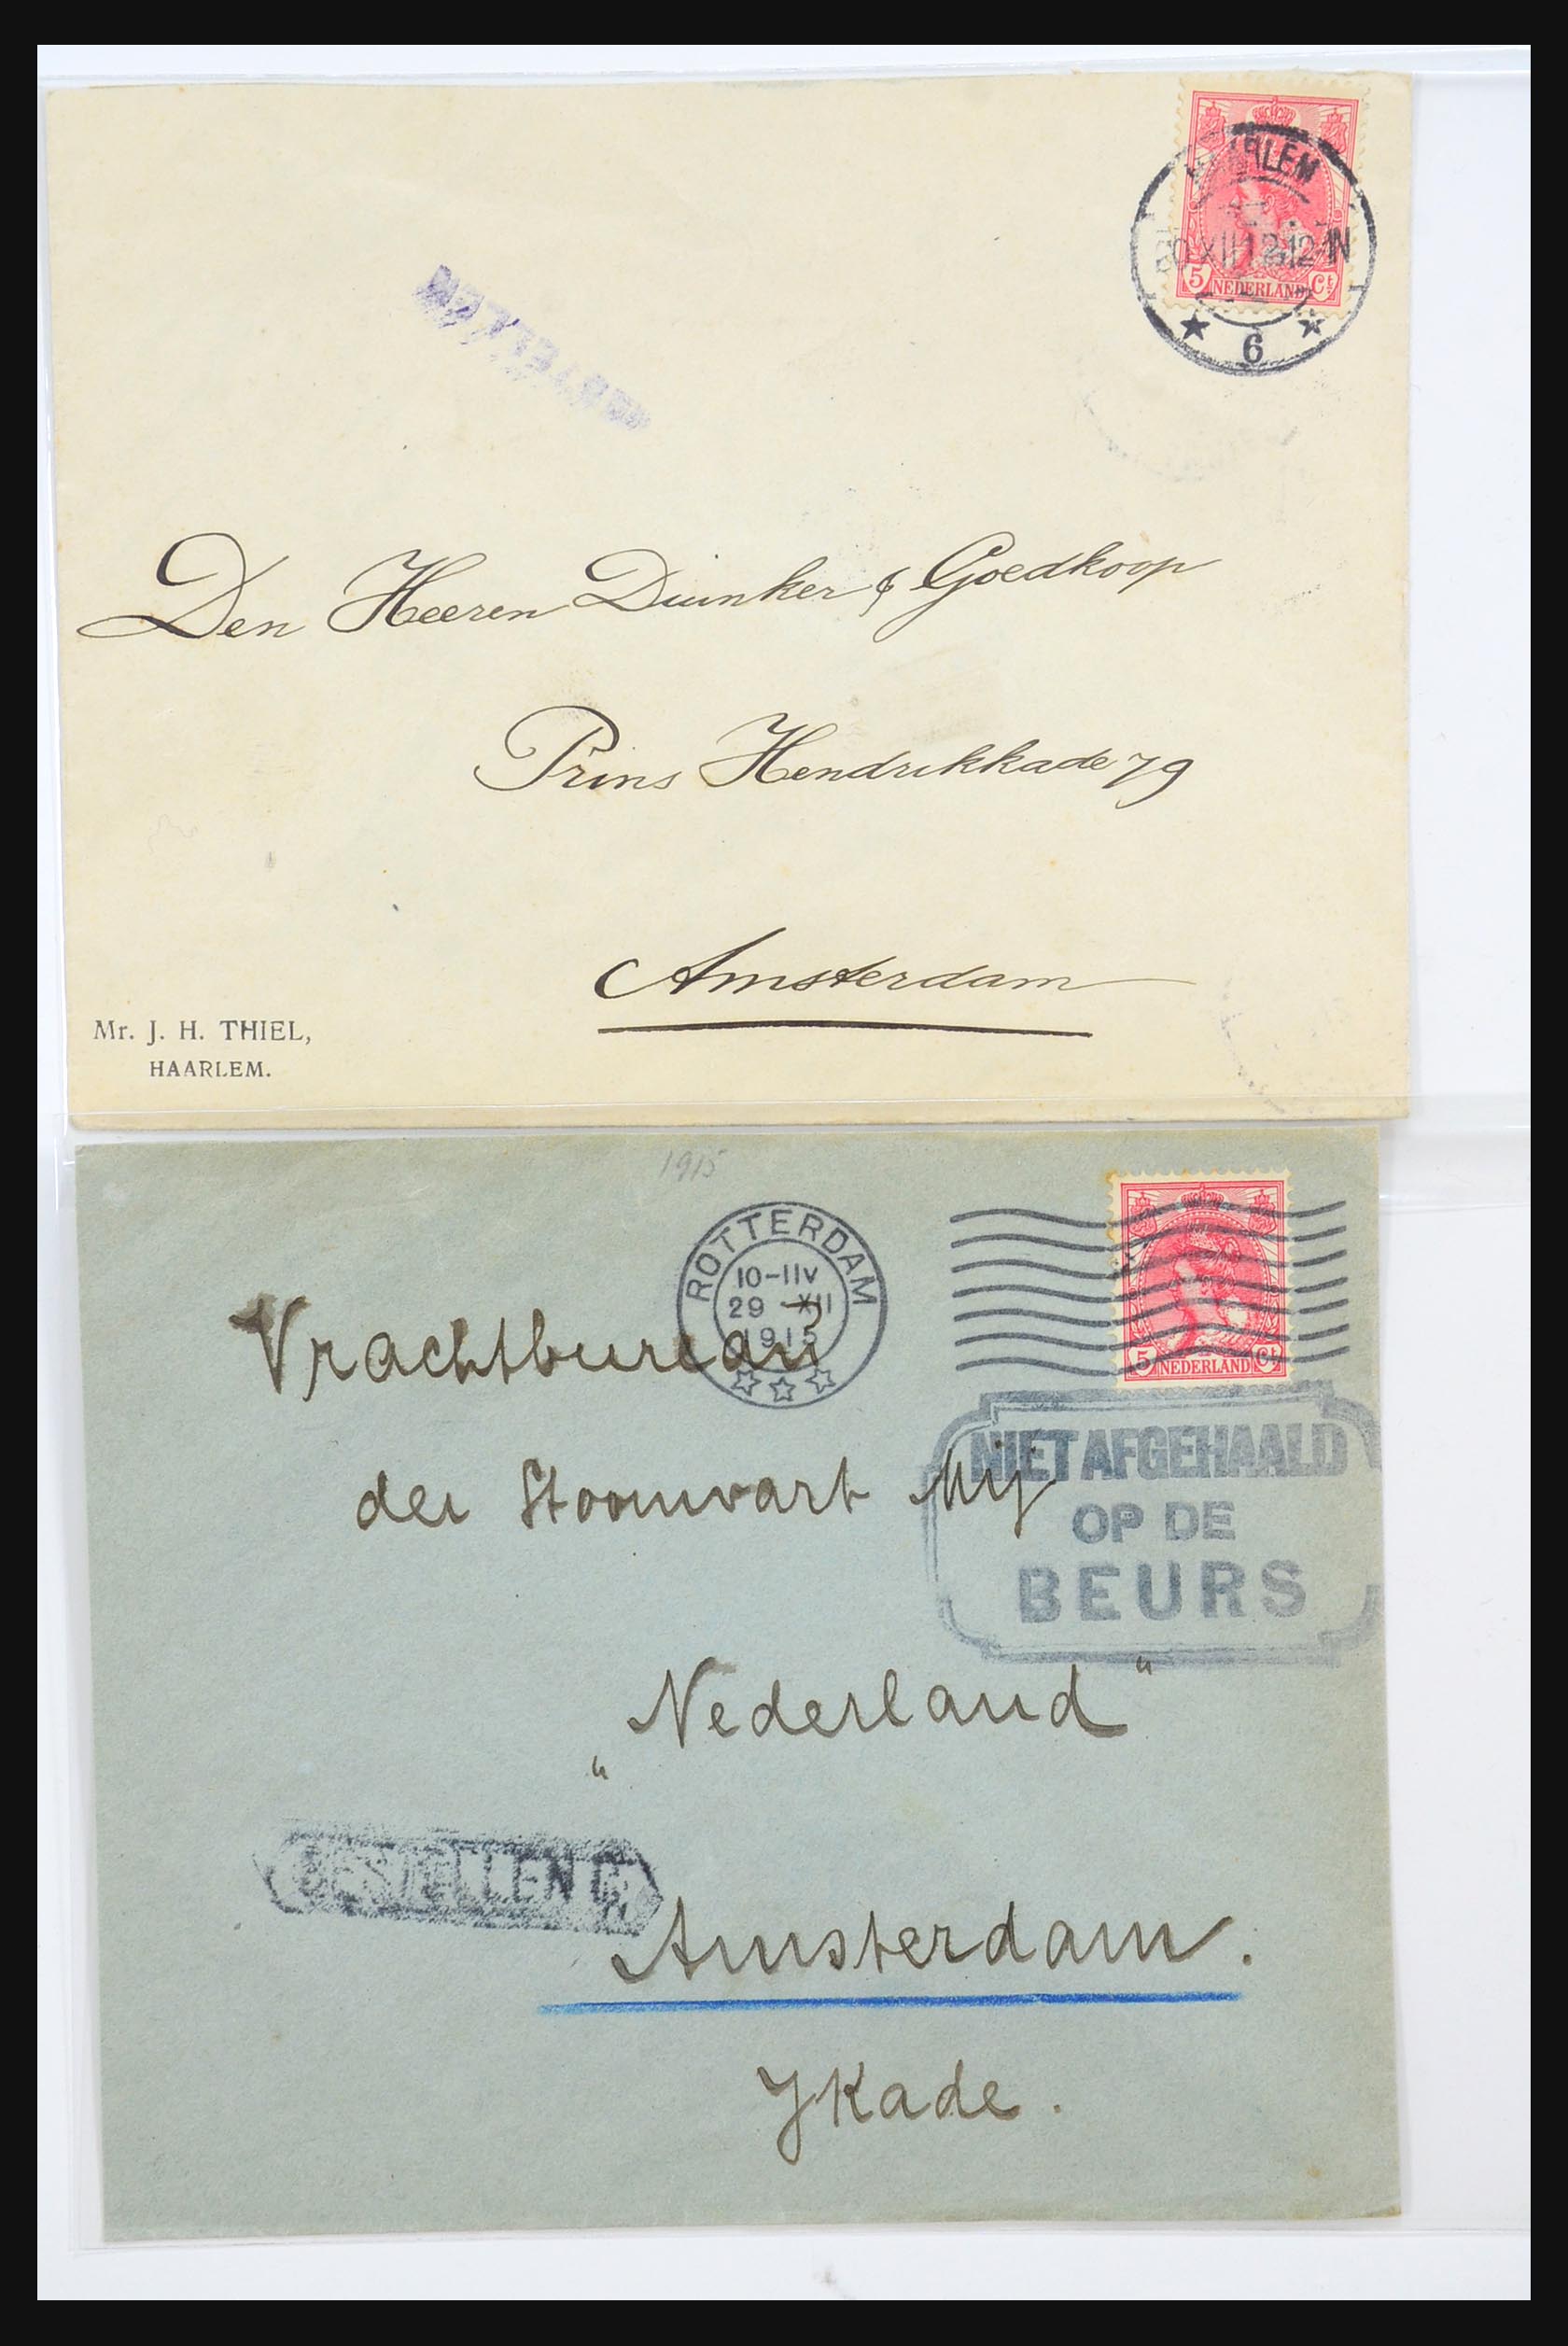 5 NEDERLAND Ct
6
Den Heeren Duinker & Goedkoop
Prins Hendrikkade 79
Amsterdam
Mr. J. H. THIEL,
HAARLEM.
1915
ROTTERDAM
10-11V
29 -XII
1915
5 NEDERLAND Ct
Vrachtbureau
der Stoomvart Mij
NIET AFGEHAALD
OP DE
BEURS
„Nederland"
Amsterdam.
YKade.